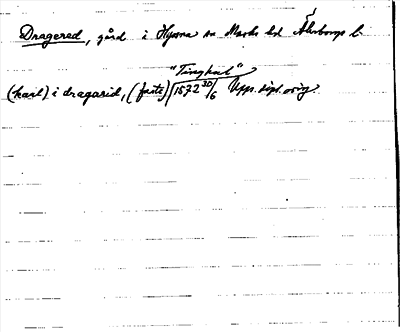 Dragered, gård i Hyssna sn Marks hd Älvsborgs l.
"Tingkal"
(karl) i dragarid, (faste) 1572 30/6 Upps. dipl. orig.